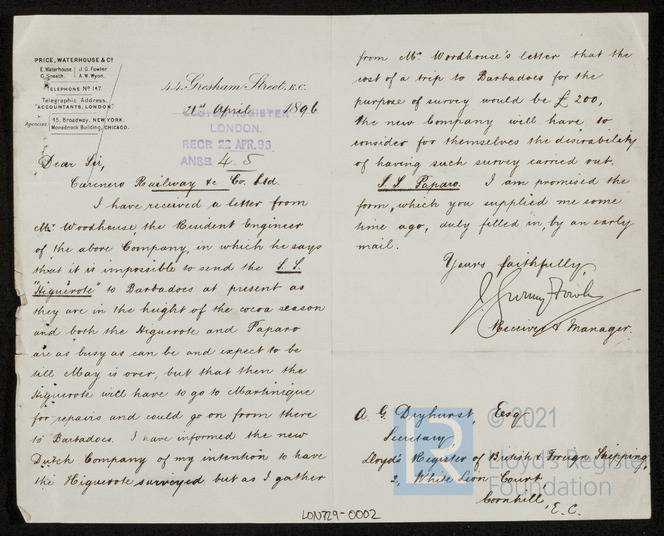 PRICE, WATERHOUSE & Co
E. Waterhouse J. G. Fowler
G. Sneath. A. W. Wyon.
TELEPHONE No 147.
Telegraphic Address,
"ACCOUNTANTS, LONDON."
Agencies
45, Broadway, NEW YORK.
Monadnock Building, CHICAGO.
44, Gresham Street, E.C.
21st April 1896
LLOYD'S REGISTER
LONDON.
RECD 22 APR. 96
ANSD 4.5
Dear Sir,
Carenero Railway &c Co. Ltd
I have received a letter from
Mr Woodhouse, the Resident Engineer
of the above Company, in which he says
that it is impossible to send the S.S.
"Higuerote" to Barbadoes at present as
they are in the height of the cocoa season
and both the Higuerote and Paparo
are as busy as can be and expect to be
till May is over, but that then the
Higuerote will have to go to Martinique
for repairs and could go on from there
to Barbadoes. I have informed the new
Dutch Company of my intention to have
the Higuerote surveyed but as I gather
from Mr Woodhouse's letter that the
cost of a trip to Barbadoes for the
purpose of survey would be £200,
the new Company will have to
consider for themselves the desirability
of having such survey carried out.
S.S. Paparo. I am promised the
form, which you supplied me some
time ago, duly filled in, by an early
mail.
Yours faithfully,
Fowler
Receiver & Manager.
A. G. Dryhurst, Esq
Secretary
Lloyd's Register of British & Foreign Shipping,
2, White Lion Court
Cornhill, E.C.
LON729-0002
© 2021
Lloyd's Register
Foundation